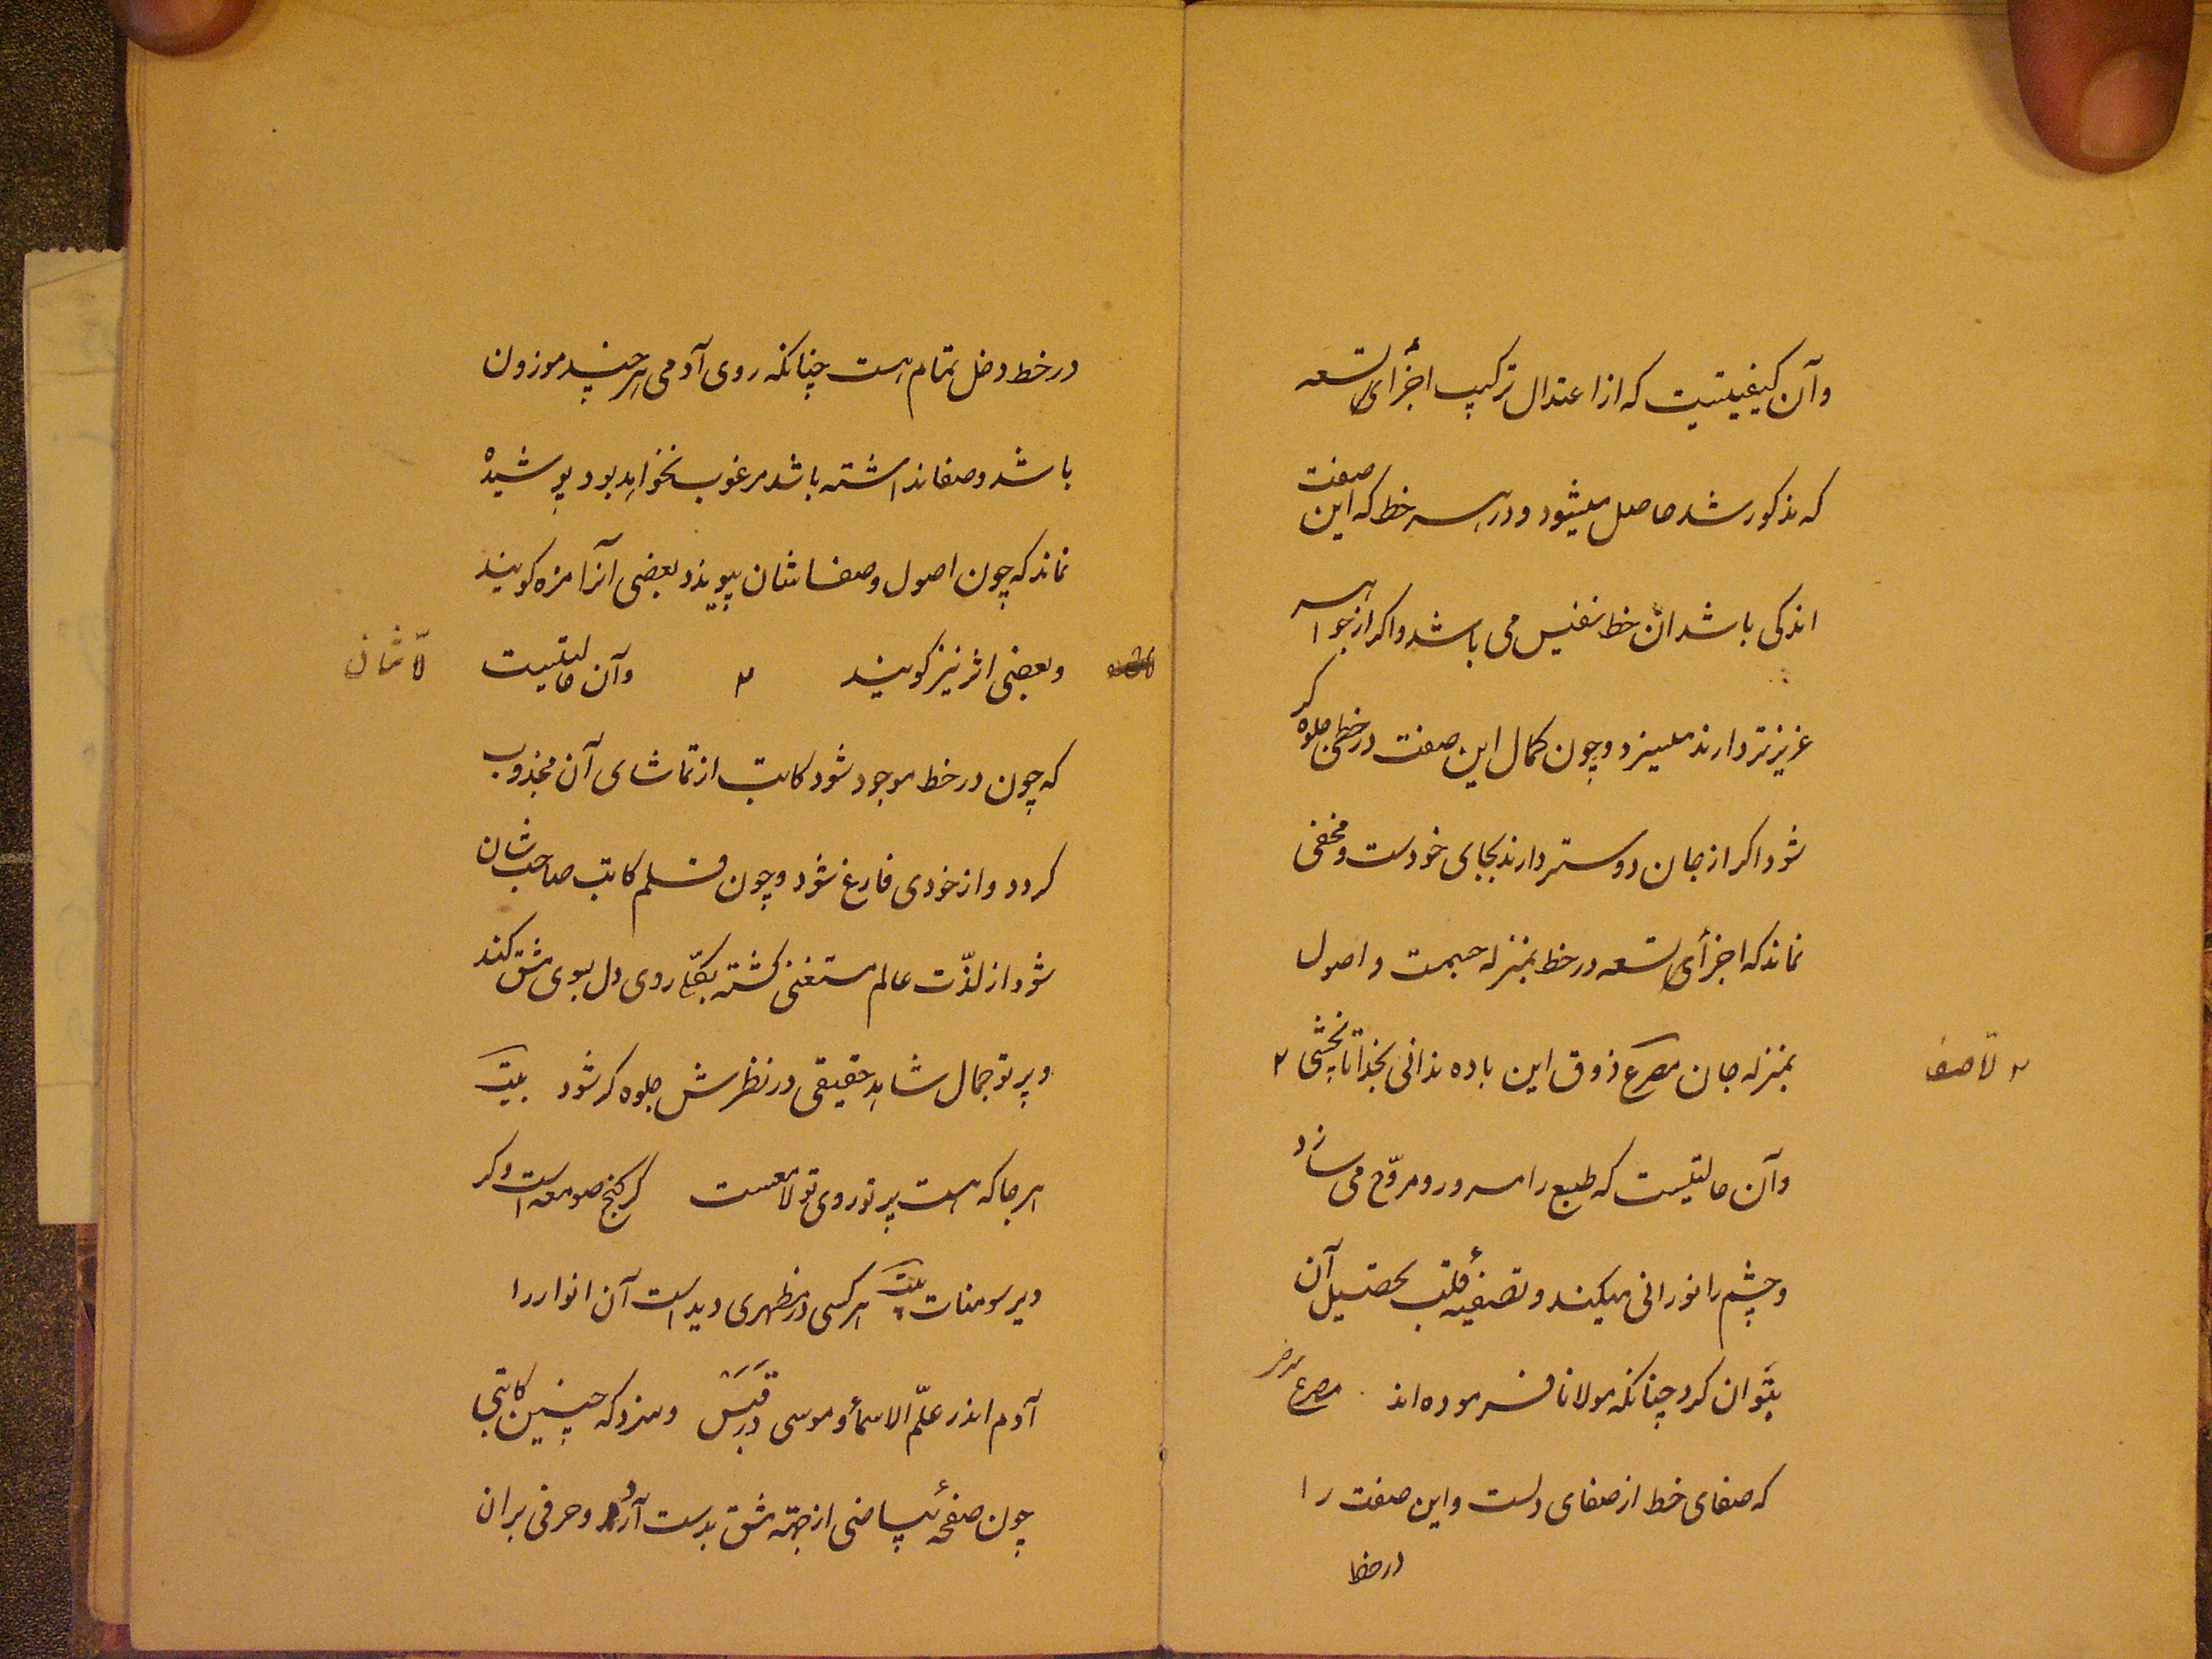 وآن کیفیتیست که از اعتدال ترکیب اجزأی تسعه
که مذکور شد حاصل میشود و در هر خط که این صفت
اندکی باشد آن خط نفیس می باشد و اکر از جواهر
عزیزتر دارند میسزد و چون کمال این صفت در خطی جلوه کر
شود اکر از جان دوستر دارند بجای خودست و مخفی
نماند که اجزأی تسعه در خط بمنزله جسمست و اصول
بمنزله جان مصرع ذوق این باده ندانی بخدا تا نچشی ۲
۲ لا صفا
وآن حالتیست که طبع را مسرور و مروّح می سازد
و چشم را نورانی میکند و تصفیهٔ قلب تحصیل آن
بتوان کرد چنانکه مولانا فرموده اند مصرع
که صفای خط از صفای دلست و این صفت را
در خط
در خط دخل تمام است چنانکه روی آدمی هر چند موزون
باشد و صفا نداشته باشد مرغوب نخواهد بود پوشیدهٔ
نماند که چون اصول و صفا شان پیویندد بعضی آنرا مزه کویند
و بعضی اثر نیز کویند ۲ وآن حالتیست
لا شان
که چون در خط موجود شود کاتب از تماشای آن مجذوب
کردد و از خودی فارغ شود و چون قلم کاتب صاحب شان
شود از لذّت عالم مستغنی کشته بکلّی روی دل بسوی مشق کند
و پرتو جمال شاهد حقیقی در نظرش جلوه کر شود بیت
هر جا که هست پرتو روی تو لامعست کر کنج صومعه است و کر
دیر سومنات بیت هر کسی در مظهری دید است آن انوار را
آدم اندر علّم الاسمأ و موسی در قبس و سزد که چنین کاتبی
چون صفحهٔ بیاضی از جهته مشق بدست آرد و حرفی بر ان